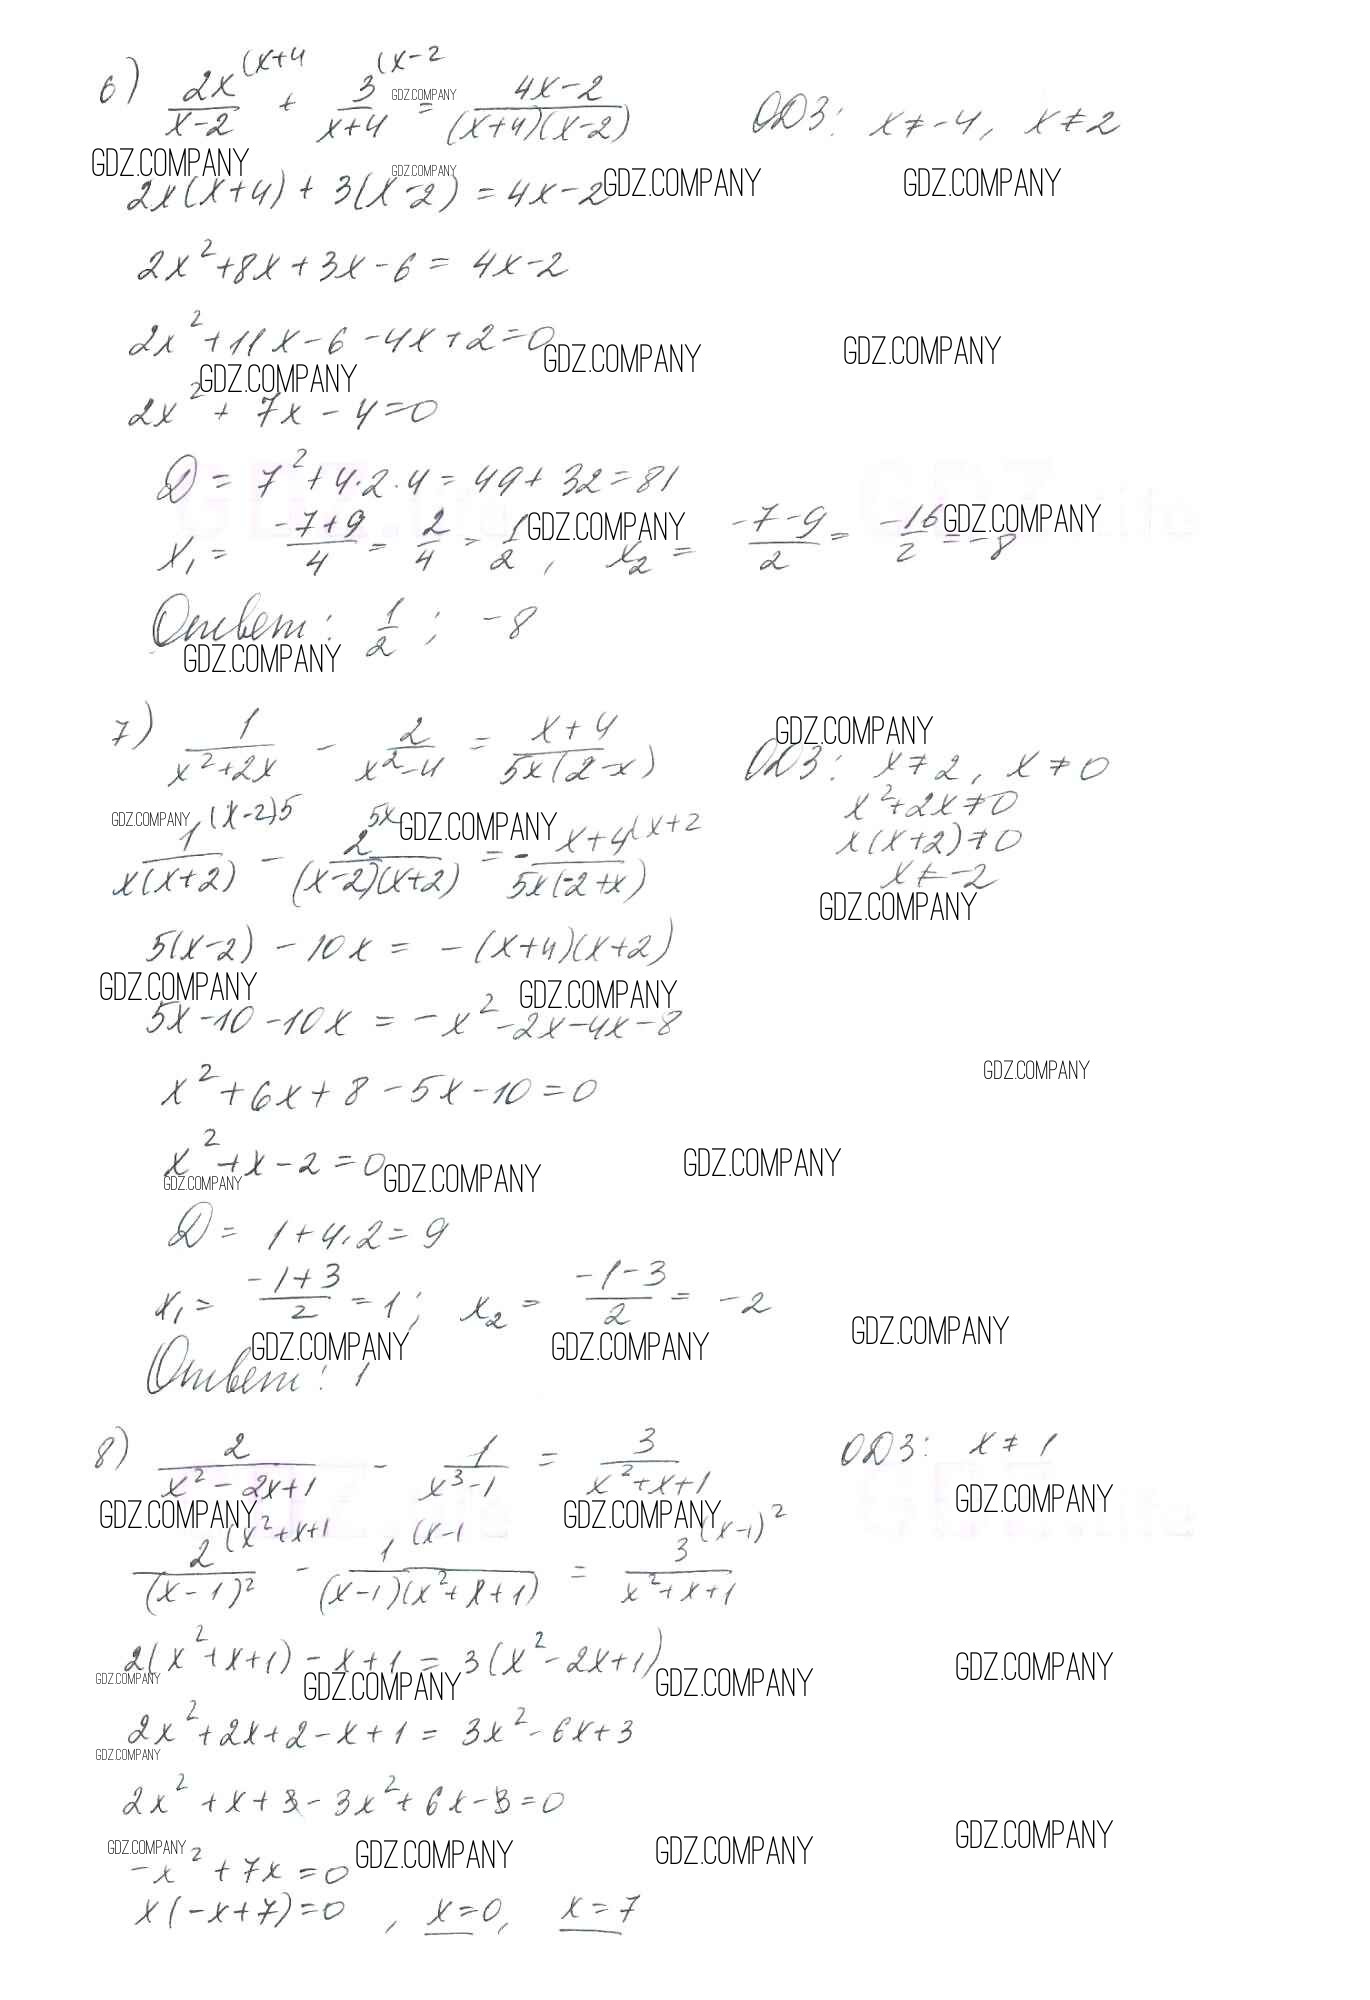 6) 2x^(x+4 / x-2 + 3^(x-2 / x+4 = 4x-2 / (x+4)(x-2) ОДЗ: x≠-4, x≠2
GDZ.COMPANY
GDZ.COMPANY GDZ.COMPANY
2x(x+4) + 3(x-2) = 4x-2 GDZ.COMPANY GDZ.COMPANY
2x²+8x+3x-6 = 4x-2
2x²+11x-6-4x+2=0 GDZ.COMPANY GDZ.COMPANY
GDZ.COMPANY
2x²+7x-4=0
D = 7²+4·2·4=49+32=81
x₁ = -7+9/4 = 2/4 = 1/2, x₂ = -7-9/2 = -16/2 = -8
GDZ.COMPANY GDZ.COMPANY
Ответ: 1/2; -8
GDZ.COMPANY
7) 1/x²+2x - 2/x²-4 = x+4/5x(2-x) ОДЗ: x≠2, x≠0
GDZ.COMPANY
x²+2x≠0
GDZ.COMPANY GDZ.COMPANY
1^(x-2)5 / x(x+2) - 2^5x / (x-2)(x+2) = - x+4^(x+2 / 5x(-2+x) x(x+2)≠0
x≠-2
GDZ.COMPANY
5(x-2) - 10x = -(x+4)(x+2)
GDZ.COMPANY GDZ.COMPANY
5x-10-10x = -x²-2x-4x-8
GDZ.COMPANY
x²+6x+8-5x-10=0
x²+x-2=0
GDZ.COMPANY GDZ.COMPANY GDZ.COMPANY
D = 1+4·2=9
x₁ = -1+3/2 = 1; x₂ = -1-3/2 = -2
GDZ.COMPANY GDZ.COMPANY GDZ.COMPANY
Ответ: 1
8) 2/x²-2x+1 - 1/x³-1 = 3/x²+x+1 ОДЗ: x≠1
GDZ.COMPANY GDZ.COMPANY GDZ.COMPANY
2^(x²+x+1 / (x-1)² - 1^(x-1 / (x-1)(x²+x+1) = 3^(x-1)² / x²+x+1
2(x²+x+1)-x+1 = 3(x²-2x+1)
GDZ.COMPANY GDZ.COMPANY GDZ.COMPANY GDZ.COMPANY
2x²+2x+2-x+1=3x²-6x+3
GDZ.COMPANY
2x²+x+3-3x²+6x-3=0
GDZ.COMPANY GDZ.COMPANY GDZ.COMPANY GDZ.COMPANY
-x²+7x=0
x(-x+7)=0, x=0, x=7